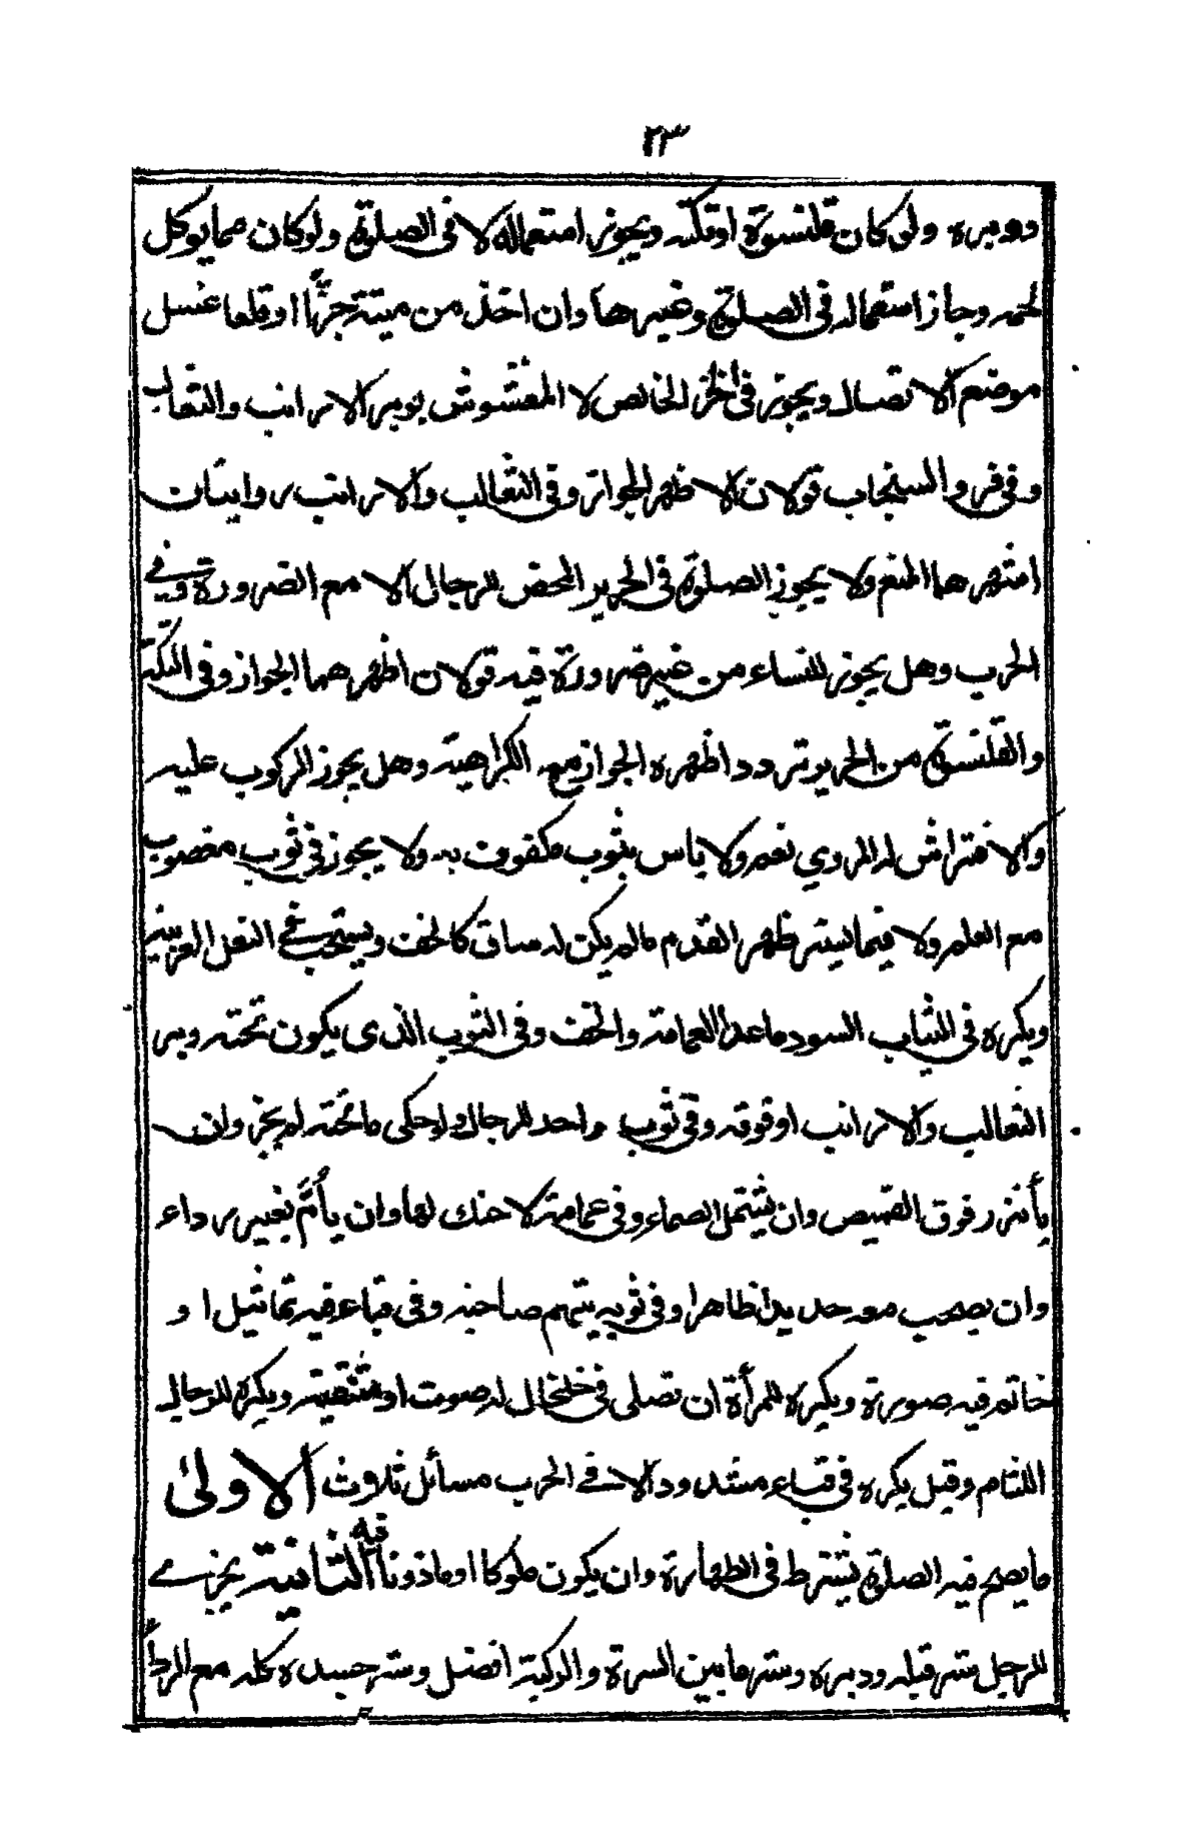 ٢٣
ووبره ولو كان قلنسوة او تكته ويجوز استعماله لا في الصلوة ولو كان مما يوكل
لحمه وجاز استعماله في الصلوة وغيرها وان اخذ من ميتة جزّا او قلعا غسل
موضع الاتصال ويجوز في الخز الخالص لا المغشوش بوبر الارانب والثعالب
وفي فرو السنجاب قولان الاظهر الجواز وفي الثعالب والارانب روايتان
اشهرهما المنع ولا يجوز الصلوة في الحرير المحض للرجال الا مع الضرورة وفي
الحرب وهل يجوز للنساء من غير ضرورة فيه قولان اظهرهما الجواز وفي التكة
والقلنسوة من الحرير تردد اظهره الجواز مع الكراهية وهل يجوز الركوب عليه
والافتراش له المروي نعم ولا باس بثوب مكفوف به ولا يجوز في ثوب مغصوب
مع العلم ولا فيما يستر ظهر القدم مالم يكن له ساق كالخف ويستحب في النعل العربية
ويكره في الثياب السود ما عدا العمامة والخف وفي الثوب الذى يكون تحته وبر
الثعالب والارانب او فوقه وفي ثوب واحد للرجال ولو حكى ما تحته لم يجز وان
يأتزر فوق القميص وان يشتمل الصماء وفي عمامة لا حنك لها وان يأمّ بغير رداء
وان يصحب معه حديدا ظاهرا وفي ثوب يتهم صاحبه وفي قباء فيه تماثيل او
خاتم فيه صورة ويكره للمرأة ان تصلى في خلخال له صوت او متنقبة ويكره للرجال
اللثام وقيل يكره في قباء مشدود الا في الحرب مسائل ثلاث الاولى
ما يصح فيه الصلوة يشترط فى الطهارة وان يكون مملوكا او ماذونا فيه الثانية يجزي
للرجل ستر قبله ودبره وستر ما بين السرة والركبة افضل وستر جسده كله مع الرداء